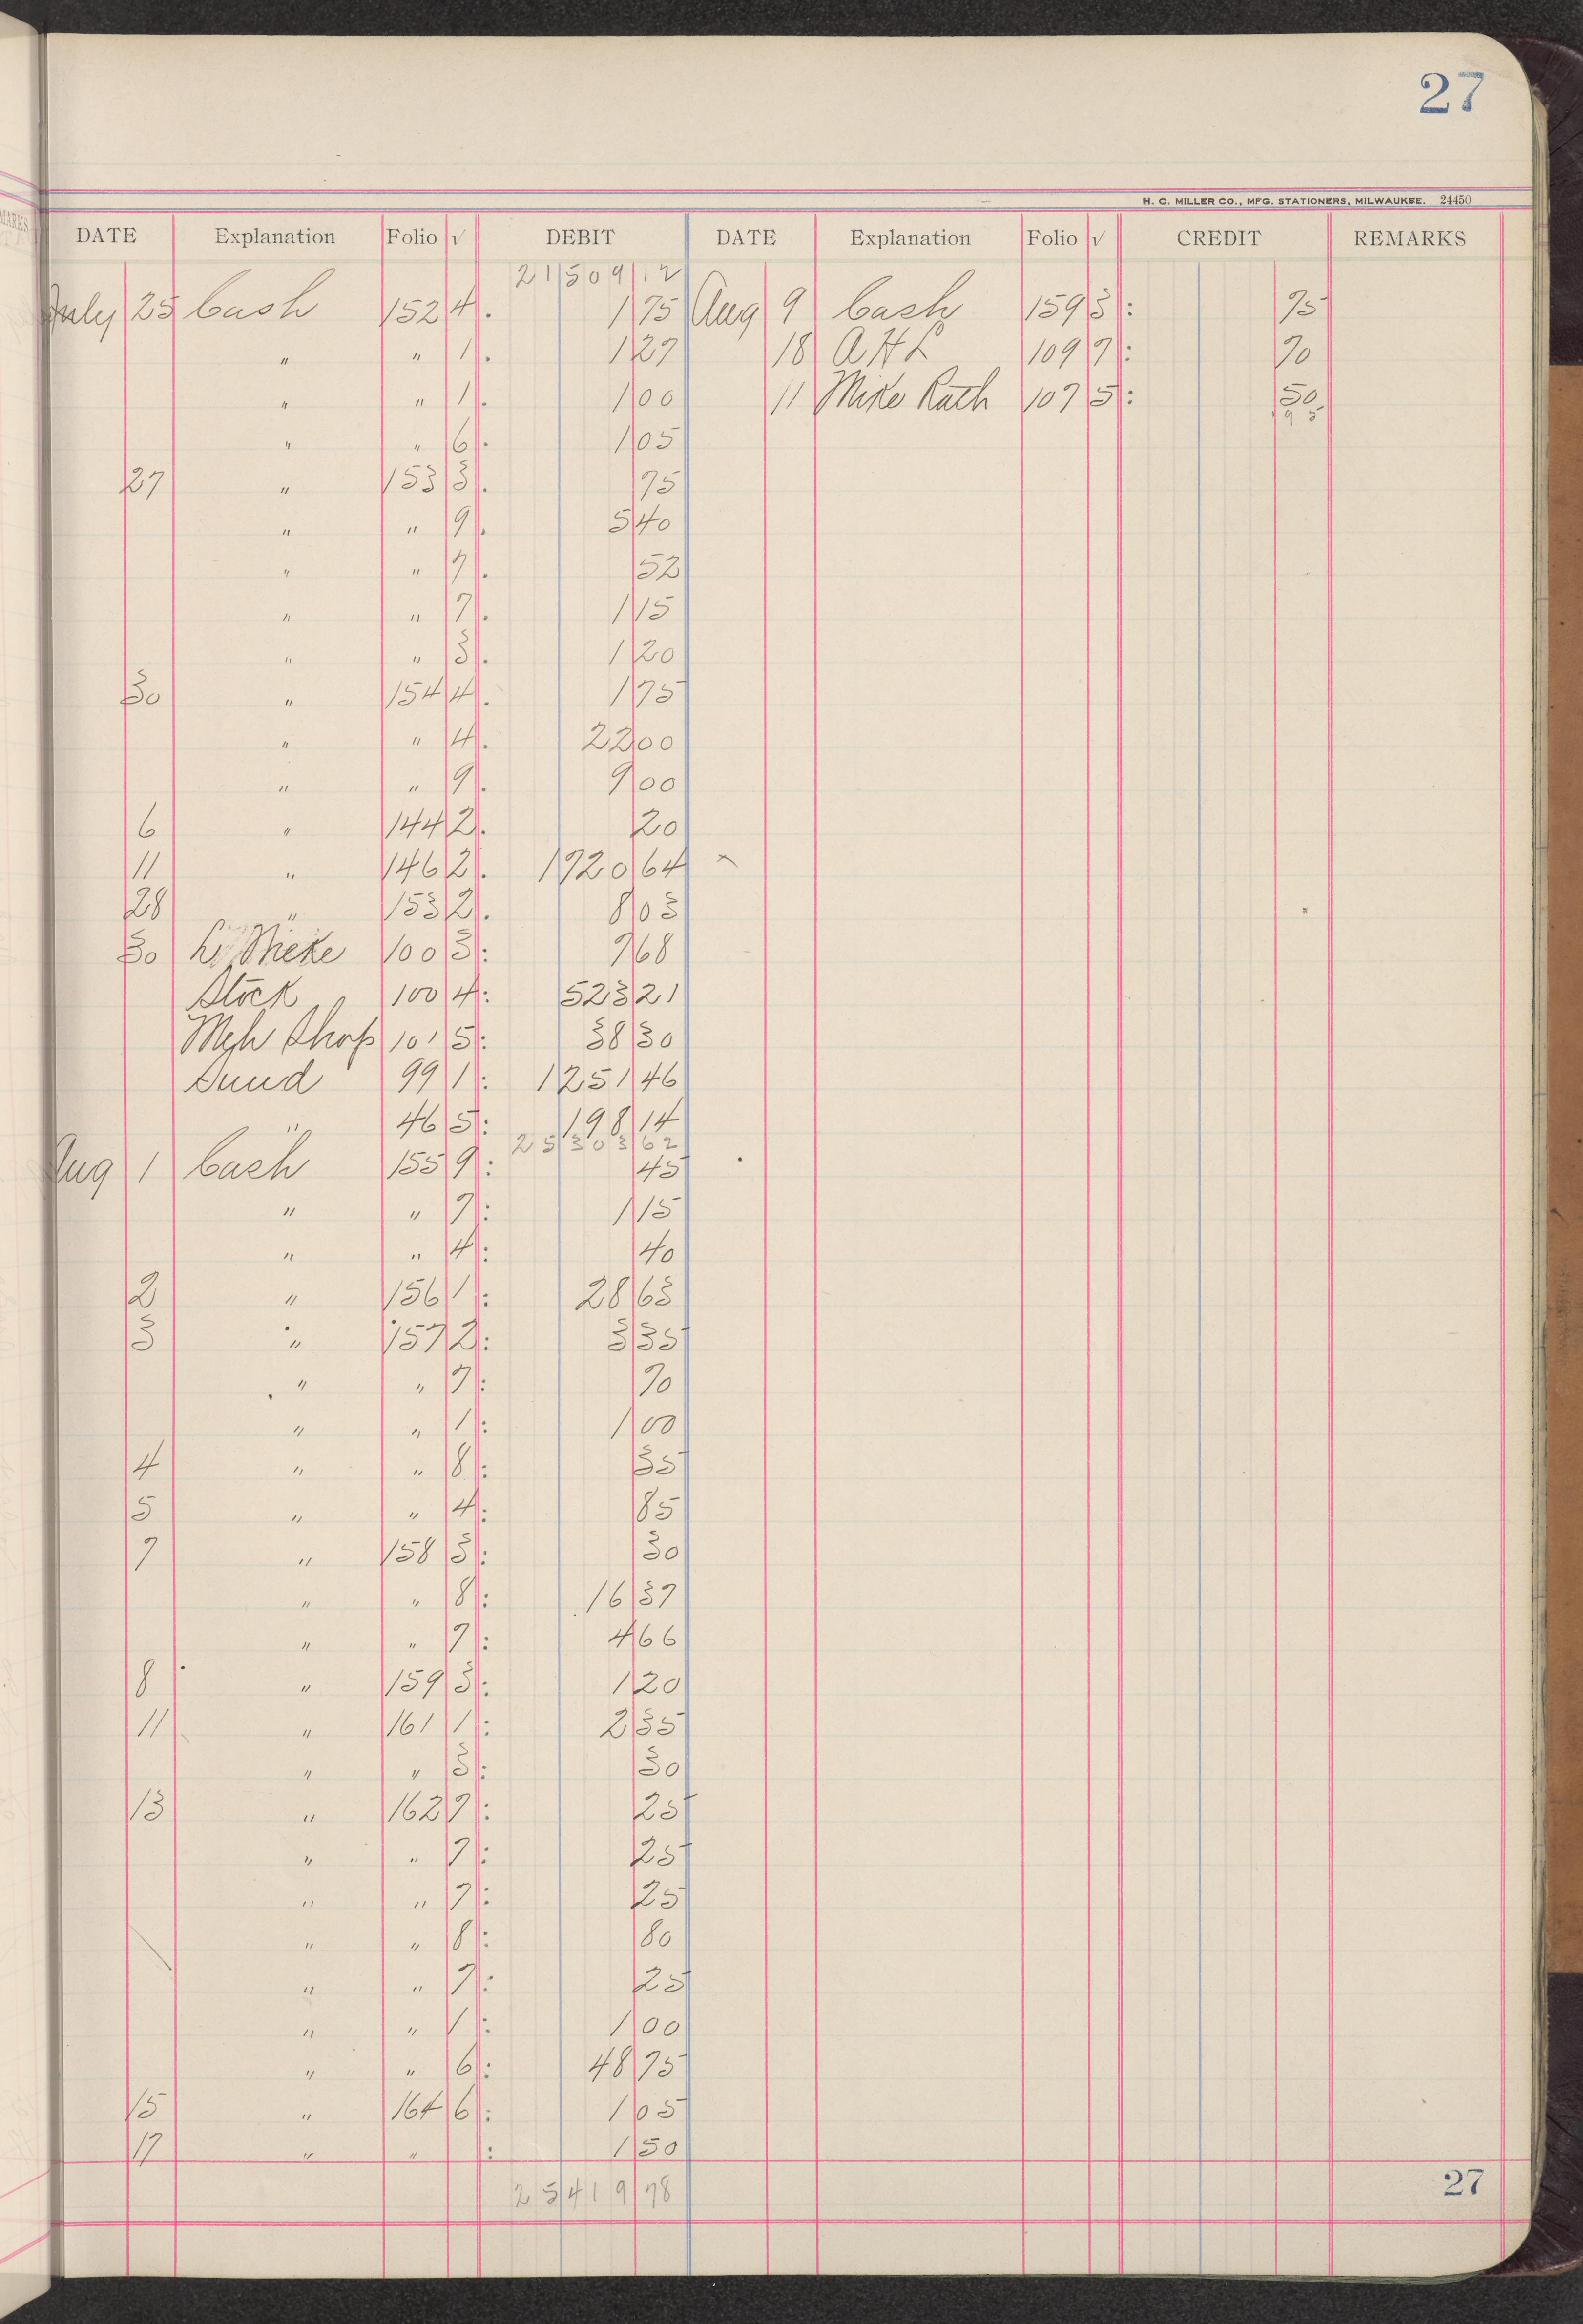 27
H. C. MILLER CO., MFG. STATIONERS, MILWAUKEE. 24450
MARKS
DATE Explanation Folio √ DEBIT DATE Explanation Folio √ CREDIT REMARKS
21509 12
July 25 Cash 152 4. 1 75 Aug 9 Cash 159 3: 75
" " 1. 1 27 18 A H L 109 7: 70
" " 1. 1 00 11 Mike Rath 107 5: 50
" " 6. 1 05 1 95
27 " 153 3. 75
" " 9. 5 40
" " 7. 52
" " 7. 1 15
" " 3. 1 20
30 " 154 4. 1 75
" " 4. 22 00
" " 9. 9 00
6 " 144 2. 20
11 " 146 2. 1720 64
28 " 153 2. 8 03
30 L. Mieke 100 3: 7 68
Stock 100 4: 523 21
Mch Shop 101 5: 38 30
Sund 99 1: 1251 46
" 46 5: 198 14
25303 62
Aug 1 Cash 155 9: 45
" " 7: 1 15
" " 4: 40
2 " 156 1: 28 63
3 " 157 2: 3 35
" " 7: 70
" " 1: 1 00
4 " " 8: 35
5 " " 4: 85
7 " 158 3: 30
" " 8: 16 37
" " 7: 4 66
8 " 159 3: 1 20
11 " 161 1: 2 35
" " 3: 30
13 " 162 7: 25
" " 7: 25
" " 7: 25
" " 8: 80
" " 7: 25
" " 1: 1 00
" " 6: 48 75
15 " 164 6: 1 05
17 " " : 1 50
25419 78
27